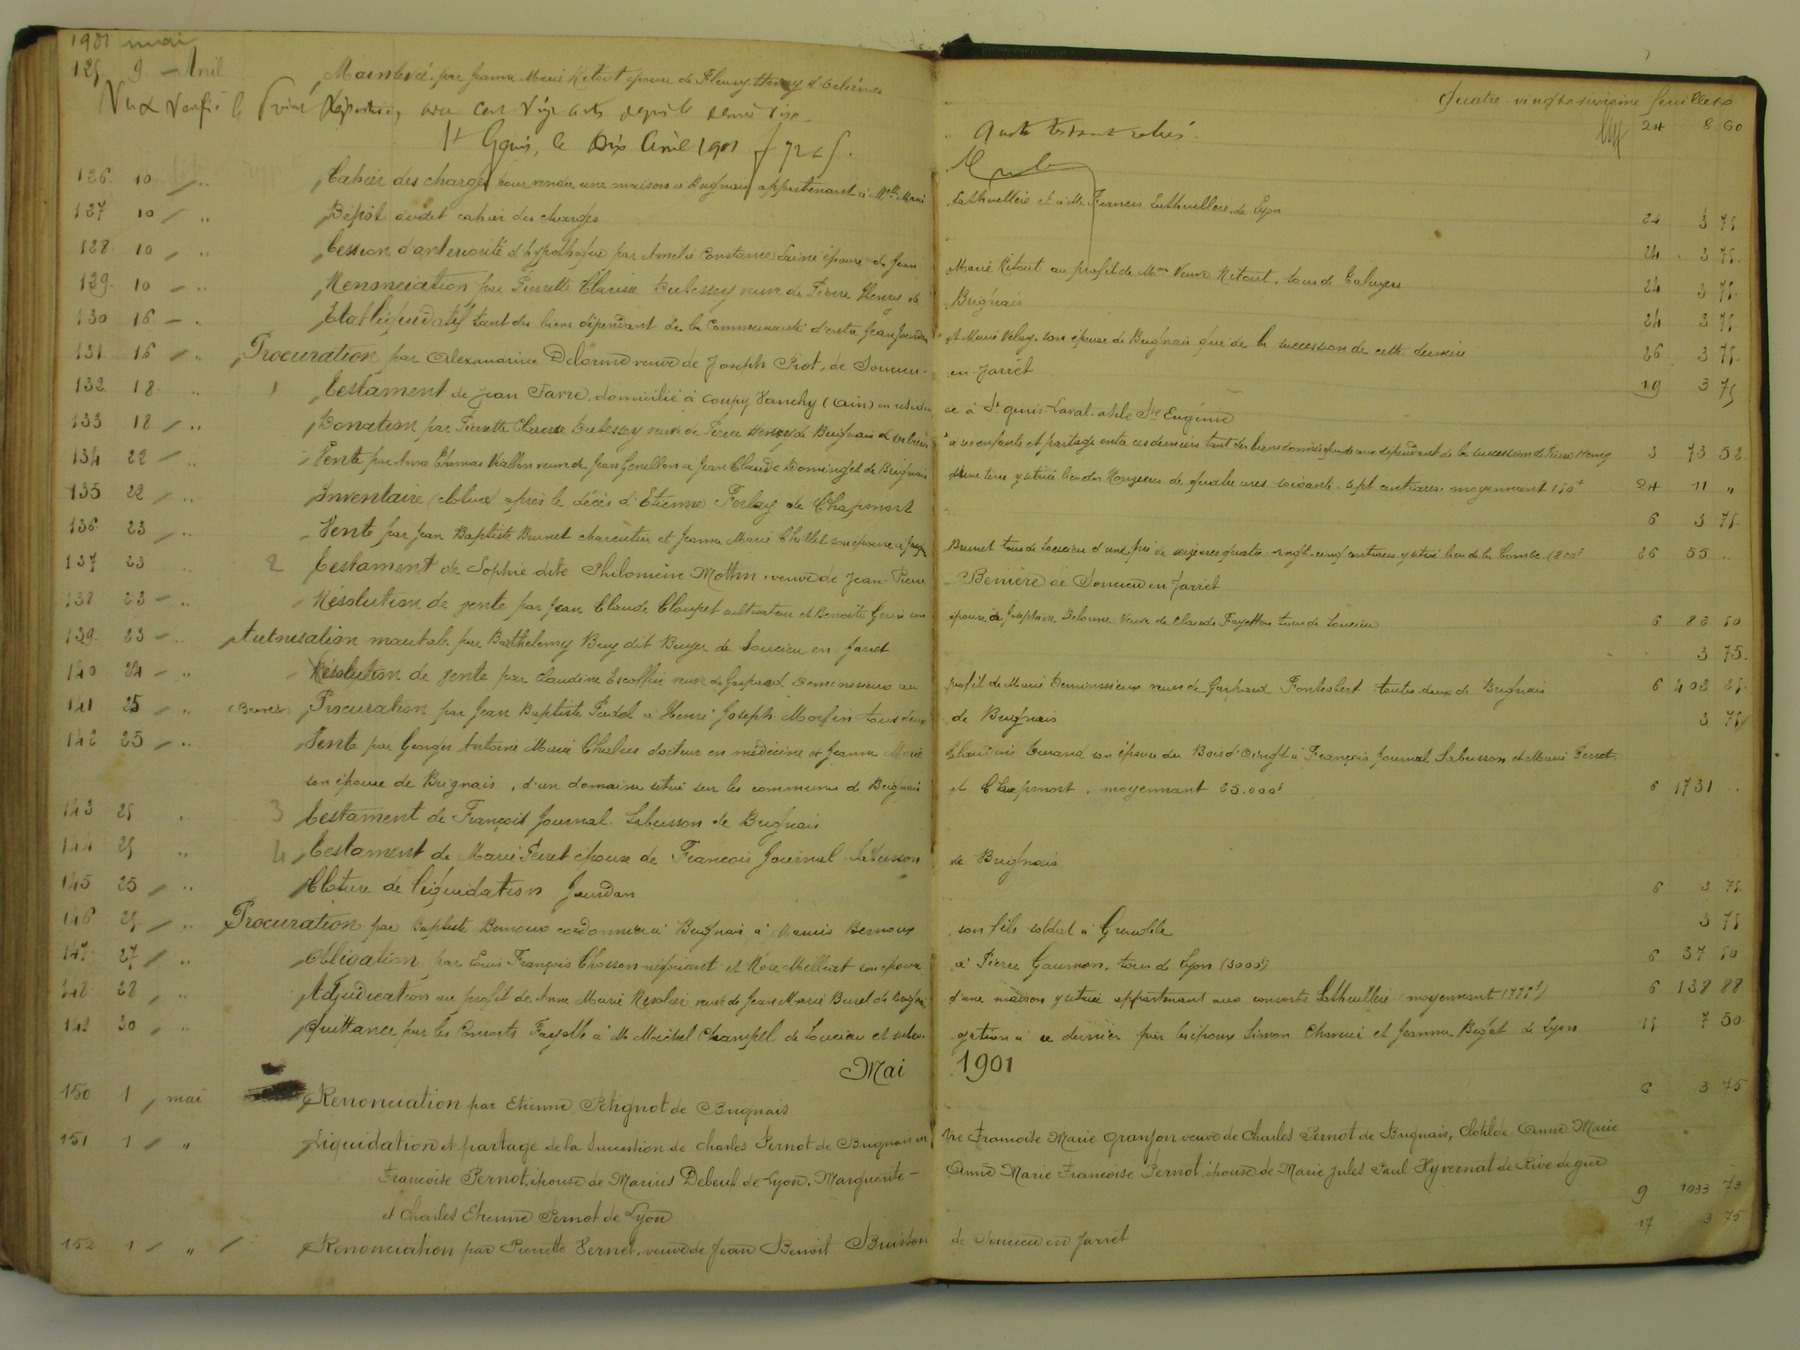 1901 mai
Quatre-vingt-sixième feuillets
125 9 - Avril Mainlevée par Jeanne Marie Retout épouse de Fleury Henry d'Orliénas 24 8 60
Vu et Vérifié le
St Genis, le Dix Avril 1901
126 10 " Cahier des charges pour vendre une maison à Brignais appartenant à Melle Marie Lathuillère et à Mr Francois Lathuillere de Lyon 24 3 75
127 10 " Dépôt dudit cahier des charges 24 3 75
128 10 " Cession d'antériorité d'hypothèque par Amélie Constance Lainé épouse de Jean Marie Retout au profit de Mme Veuve Retout, tous de Taluyers 24 3 75
129 10 " Renonciation par Pierrette Clarisse Dubessey veuve de Pierre Henry de Brignais 24 3 75
130 16 " Etat liquidatif tant des biens dépendant de la Communauté d'entre Jean Jourdan et Marie Velay son épouse de Brignais que de la succession de cette dernière 26 3 75
131 16 " Procuration par Alexandrine Delorme veuve de Joseph Piot, de Soucieu-en-Jarrêt 19 3 75
132 18 " 1 Testament de Jean Favre domicilié à Coupy Vanchy (Ain) en résidence à St Genis-Laval, asile Ste Eugénie
133 18 " Donation par Pierrette Clarisse Dubessey veuve de Pierre Henry de Brignais de ses biens à ses enfants et partage entre ces derniers tant des biens donnés que de ceux dépendant de la succession de Pierre Henry 3 73 52
134 22 " Vente par Anne Thomas Viallon veuve de Jean Genillon à Jean Claude Dominget de Brignais d'une terre y située lieu des Rongères de quatre ares soixante-sept centiares moyennant 150f 24 11 "
135 22 " Inventaire (clôture) après le décès d'Etienne Ferlay de Chaponost 6 3 75
136 23 " Vente par Jean Baptiste Brunet charcutier et Jeanne Marie Chillet son épouse à Jean Brunet tous de Soucieu d'une pré de seize ares quatre-vingt-cinq centiares y situé lieu de la Combe (800f 26 55 "
137 23 " 2 Testament de Sophie dite Philomène Mottin, veuve de Jean-Pierre Bernière de Soucieu en Jarret
138 23 " Résolution de vente par Jean Claude Cloupet cultivateur et Benoîte Genin son épouse de Joséphine Delorme Veuve de Claude Fayolle tous de Soucieu 6 82 50
139 23 " Autorisation maritale par Barthelemy Buy dit Buyer de Soucieu en Jarret 3 75
140 24 " Résolution de vente par Claudine Escoffier veuve de Gaspard Deminessieux au profit de Marie Deminessieux veuve de Gaspard Fontrobert toutes deux de Brignais 6 402 25
141 25 " (Brevet) Procuration par Jean Baptiste Fadol à Henri Joseph Morfin tous deux de Brignais 3 75
142 25 " Vente par Georges Antoine Marie Chalus docteur en médecine et Jeanne Marie Claudine Durand son épouse du Bois d'Oingt à François Journal Labusson et Marie Ferret
son épouse de Brignais, d'un domaine situé sur les communes de Brignais et Chaponost, moyennant 25.000f 6 1731 "
143 25 " 3 Testament de François Journal-Labusson de Brignais
144 25 " 4 Testament de Marie Ferret épouse de François Journal Labusson de Brignais
145 25 " Clôture de liquidation Jourdan 6 3 75
146 25 " Procuration par Baptiste Bernoux cordonnier à Brignais à Marius Bernoux son fils soldat à Grenoble 3 75
147 27 " Obligation par Louis François Chosson négociant et Rose Milliat son épouse à Pierre Gaumon, tous de Lyon (3000f) 6 37 50
148 28 " Adjudication au profit de Anne Marie Revolier veuve de Jean Marie Burel de Brignais d'une maison y située appartenant aux consorts Lathuillière moyennant 1775f) 6 138 88
149 30 " Quittance par les Consorts Fayolle à Mr Michel Champel de Soucieu et subrogation à ce dernier par les époux Simon Charvin et Jeanne Bizet de Lyon 15 7 50
Mai 1901
150 1 mai Renonciation par Etienne Petignot de Brignais 6 3 75
151 1 " Liquidation et partage de la succession de Charles Pernot de Brignais entre Francoise Marie Granjon veuve de Charles Pernot de Brignais, Clotilde Anne Marie
Francoise Pernot, épouse de Marius Debeuf de Lyon, Marguerite- Anne Marie Francoise Pernot, épouse de Marie Jules Paul Hyvernat de Rive de gier
et Charles Etienne Pernot de Lyon 9 1033 73
152 1 " Renonciation par Pierrette Vernet, veuve de Jean Benoît Buisson de Soucieu en Jarret 17 3 75